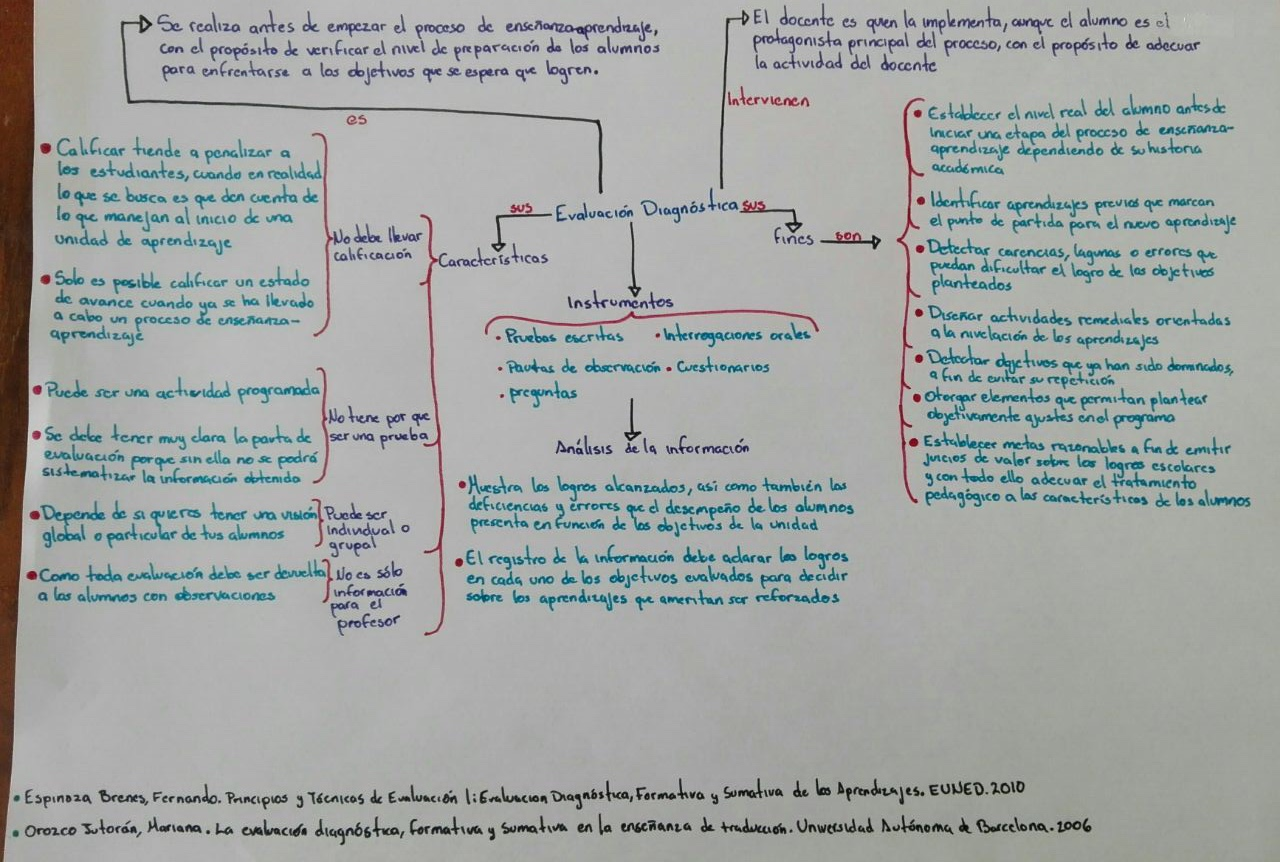 Se realiza antes de empezar el proceso de enseñanza-aprendizaje,
con el propósito de verificar el nivel de preparación de los alumnos
para enfrentarse a los objetivos que se espera que logren.
El docente es quien la implementa, aunque el alumno es el
protagonista principal del proceso, con el propósito de adecuar
la actividad del docente
Intervienen
es
sus
Evaluación Diagnóstica
sus
fines
son
Características
No debe llevar
calificación
Calificar tiende a penalizar a
los estudiantes, cuando en realidad
lo que se busca es que den cuenta de
lo que manejan al inicio de una
unidad de aprendizaje
Solo es posible calificar un estado
de avance cuando ya se ha llevado
a cabo un proceso de enseñanza-
aprendizaje
No tiene por que
ser una prueba
Puede ser una actividad programada
Se debe tener muy clara la pauta de
evaluación porque sin ella no se podrá
sistematizar la información obtenida
Puede ser
individual o
grupal
Depende de si quieres tener una visión
global o particular de tus alumnos
No es sólo
información
para el
profesor
Como toda evaluación debe ser devuelta
a los alumnos con observaciones
Instrumentos
• Pruebas escritas • Interrogaciones orales
• Pautas de observación • Cuestionarios
• preguntas
Análisis de la información
• Muestra los logros alcanzados, así como también las
deficiencias y errores que el desempeño de los alumnos
presenta en función de los objetivos de la unidad
• El registro de la información debe aclarar los logros
en cada uno de los objetivos evaluados para decidir
sobre los aprendizajes que ameritan ser reforzados
• Establecer el nivel real del alumno antes de
iniciar una etapa del proceso de enseñanza-
aprendizaje dependiendo de su historia
académica
• Identificar aprendizajes previos que marcan
el punto de partida para el nuevo aprendizaje
• Detectar carencias, lagunas o errores que
puedan dificultar el logro de los objetivos
planteados
• Diseñar actividades remediales orientadas
a la nivelación de los aprendizajes
• Detectar objetivos que ya han sido dominados,
a fin de evitar su repetición
• Otorgar elementos que permitan plantear
objetivamente ajustes en el programa
• Establecer metas razonables a fin de emitir
juicios de valor sobre los logros escolares
y con todo ello adecuar el tratamiento
pedagógico a las características de los alumnos
• Espinoza Brenes, Fernando. Principios y Técnicas de Evaluación I: Evaluacion Diagnóstica, Formativa y Sumativa de los Aprendizajes. EUNED. 2010
• Orozco Jutorán, Mariana. La evaluación diagnóstica, formativa y sumativa en la enseñanza de traducción. Universidad Autónoma de Barcelona. 2006